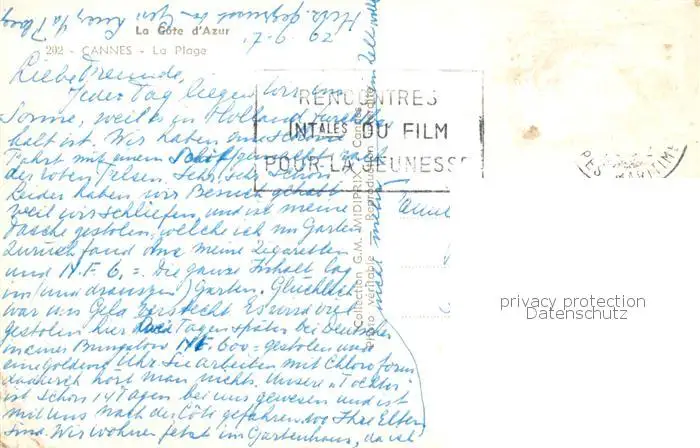 La Côte d'Azur
202 - CANNES - La Plage
Liebe Freunde,
Jeder Tag liegen wir in
Sonne, weil es in Holland
kalt ist. Wir haben eine schöne
Fahrt mit einem Boot gemacht nach
der roten Felsen. Sehr, sehr schön.
Leider haben wir Besuch gehabt
weil wir schliefen, und ist meine
Tasche gestolen, welche ich im Garten
zurück fand ohne meine Zigaretten
und N.F. 6,=. Die ganze Inhalt lag
im (und draussen) Garten. Glücklich
war uns Geld versteckt. Es wird viel
gestolen hier. Tagen später bei
meines Bungalow N.F. 600= gestolen und
eine goldene Uhr. Sie arbeiten mit Chloroform
dadurch hört man nichts. Unsere „Tochter"
ist schon 14 Tagen bei uns gewesen und ist
mit uns nach der Côte gefahren wo Ihre Eltern
sind. Wir wohnen jetzt im Gartenhaus, da
RENCONTRES
INTALES DU FILM
POUR LA JEUNESSE
MARITIME
Collection G.M. MIDIPRIX - Cannes
Photo véritable - Reproduction interdite
privacy protection
Datenschutz